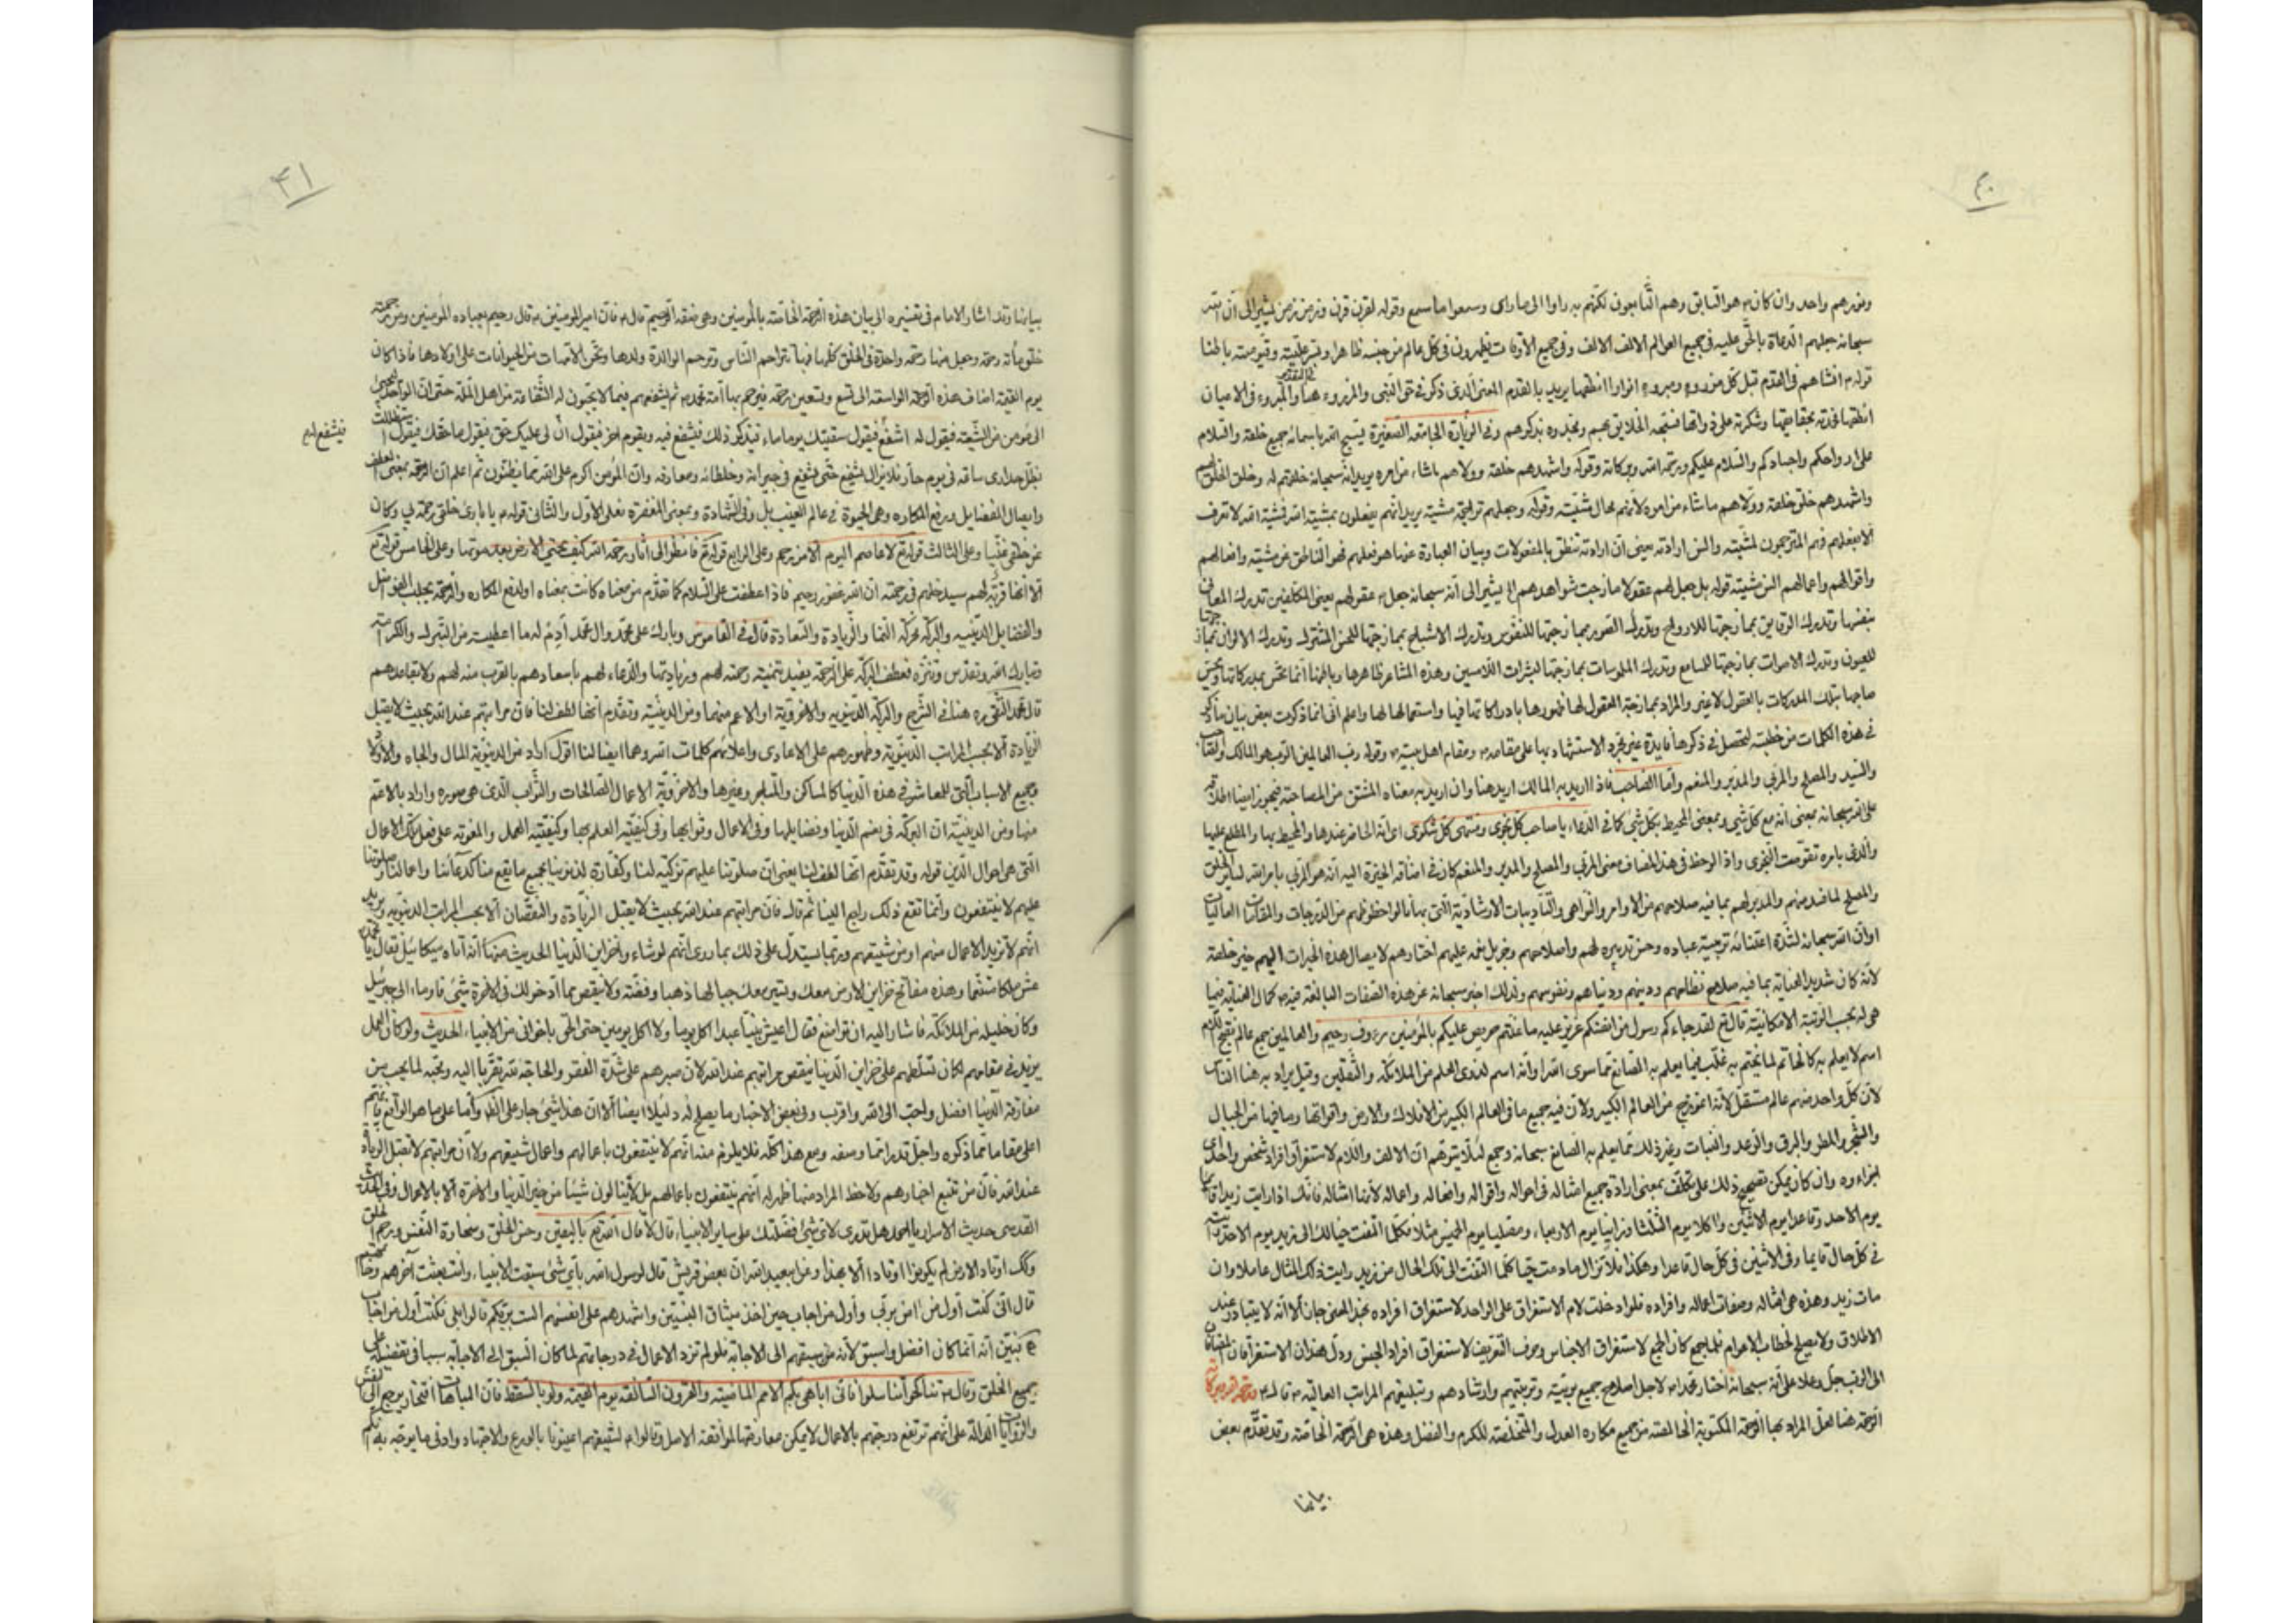 ٤٠
ونورهم واحد وان كان ص هو السابق وهم التابعون لكنهم به راوا الى ما راى وسمعوا ما سمع وقوله لقرن قرن وزمن زمن يشير الى ان الله
سبحانه جعلهم الدعاة بالحق عليه في جميع العوالم الالف الالف وفي جميع الأوقات يظهرون في كل عالم من جنسه ظاهرا وباطنا
قوله م انشاهم في القدم قبل كل مذروء ومبروء انوارا انطقها يريد بالقدم المعنى الذي ذكر في حق النبي والمذروء هنا والمبروء في الاعيان
على ارواحكم واجسادكم والسلام عليكم ورحمة الله وبركاته وقوله واشهدهم خلقه وولاهم ما شاء من امره يريد انه سبحانه خلقهم له وخلق الخلق لهم
واشهدهم خلق خلقه وولاهم ما شاء من امره لأنهم محال مشيته وقوله وجعلهم تراجمة مشيته يريد انهم يفعلون بمشية الله فمشية الله لا تعرف
الا بفعلهم فهم المترجمون لمشيته والسن ارادته يعني ان ارادته تنطق بالمفعولات وبيان العبارة عنها هو فعلهم فهو الناطق عن مشيته وافعالهم
واقوالهم واعمالهم السن مشيته قوله بل جعل لهم عقولا مازجت شواهدهم الخ يشير الى أنه سبحانه جعل عقولهم يعني المكلفين تدرك المعاني
بنفسها وتدرك الرقايق بممازجتها للارواح وتدرك الصور بممازجتها للنفوس وتدرك الاشباح بممازجتها للحس المشترك وتدرك الالوان بممازجتها
للعيون وتدرك الاصوات بممازجتها للمسامع وتدرك الملموسات بممازجتها لبشرات اللامسين وهذه المشاعر ظاهرها وباطنها انما تحس بمدركاتها ويحس
صاحبها بتلك المدركات بالعقول لا غير والمراد بممازجة العقول لها ظهورها بادراكاتها فيها واستعمالها لها واعلم اني انما ذكرت بعض بيان ما ذكر
في هذه الكلمات من خطبته لتحصل في ذكرها فايدة غير مجرد الاستشهاد بها على مقامه ص ومقام اهل بيته ص وقوله رب العالمين الرب هو المالك والصاحب
والسيد والمصلح والمربي والمدبر والمنعم وأما الصاحب فاذا اريد به المالك اريد هنا وان اريد به معناه المشتق من المصاحبة فيجوز ايضا اطلاقه
على الله سبحانه بمعنى انه مع كل شي وبمعنى المحيط بكل شي كما في الدعاء يا صاحب كل نجوى ومنتهى كل شكوى اي انه الحاضر عندها والمحيط بها والمطلع عليها
والذي بامره تقومت النجوى واذا لوحظ في هذا المضاف معنى المربي والمصلح والمدبر والمنعم كان في اضافة الخيرة اليه انه هو المربي بامر الله لساير الخلق
والمصلح لما فسد منهم والمدبر لهم بما فيه صلاحهم من الاوامر والنواهي والتأديبات الارشادية التي بها نالوا حظوظهم من الدرجات والمقامات العاليات
اوان الله سبحانه لشدة اعتنائه تربية عباده وحسن تدبيره لهم واصلاحهم وجزيل نعمه عليهم اختارهم لايصال هذه الخيرات اليهم خير خلقه
لانه كان شديد العناية بما فيه صلاح نظامهم ودينهم ودنياهم ونفوسهم ولذلك اخبر سبحانه عن هذه الصفات البالغة فيه ص كمال العناية فيما
هي له بحسب الرتبة الامكانية قال تع لقد جاءكم رسول من انفسكم عزيز عليه ما عنتم حريص عليكم بالمؤمنين رءوف رحيم والعالمين جمع عالم بفتح اللام
اسم لا يعلم به كالخاتم لما يختم به غلب فيما يعلم به الصانع مما سوى الله او أنه اسم لذوي العلم من الملائكة والثقلين وقيل يراد به هنا الناس
لان كل واحد منهم عالم مستقل لأنه انموذج من العالم الكبير ولان فيه جميع ما في العالم الكبير من الافلاك والارض واقواتها وما فيها من الجبال
والشجر والمطر والبرق والرعد والنبات وغير ذلك مما يعلم به الصانع سبحانه وجمع لئلا يتوهم ان الالف واللام لاستغراق افراد شخص واحد اي
اجزاءه وان كان يمكن تصحيح ذلك على تكلف بمعنى ارادة جميع امثاله في احواله واقواله وافعاله واعماله لأنها امثاله فانك اذا رايت زيدا قايما
يوم الاحد وقاعدا يوم الاثنين واكلا يوم الثلثا وراكبا يوم الاربعاء ومصليا يوم الخميس مثلا فكلما التفت خيالك الى زيد يوم الاحد رايته
في كل حال قايما وفي الاثنين في كل حال قاعدا وهكذا فلا تزال ما دمت حيا كلما التفت الى تلك الحال من زيد رايت ذلك المثال عاملا وان
مات زيد وهذه هي امثاله وصفات اعماله وافراده فلو ادخلت لام الاستغراق على الواحد لاستغراق افراده بهذا المعنى جاز الا انه لا يتبادر عند
الاطلاق ولا يصلح لخطاب الاعوام فلما جمع كان الجمع لاستغراق الاجناس وحرف التعريف لاستغراق افراد الجنس ودل هذان الاستغراقان المضافان
الى الرب جل وعلا على أنه سبحانه اختار محمدا ص لاجل اصلاح جميع بريته وتربيتهم وارشادهم وتبليغهم المراتب العالية ص قال م ورحمة الله وبركاته
الرحمة هنا لعل المراد بها الرحمة المكتوبة الخالصة من جميع مكاره العدل والمتخلصة للكرم والفضل وهذه هي الرحمة الخاصة وقد تقدم بعض
بيانها
٤١
بيانها وقد اشار الامام في تفسيره الى بيان هذه الرحمة الخاصة بالمومنين وهي صفة الرحيم قال م فان امير المومنين م قال رحيم بعباده المومنين ومن رحمته
خلق مأة رحمة وجعل منها رحمة واحدة في الخلق كلهم فبها تتراحم الناس وترحم الوالدة ولدها وتحنن الامهات من الحيوانات على اولادها فاذا كان
يوم القيمة اضاف هذه الرحمة الواسعة الى تسع وتسعين رحمة فيرحم بها أمة محمد ص ثم يشفعهم فيما لا يحبون له الشفاعة من اهل الملة حتى ان الواحد ليجئ
الى مؤمن من الشيعة فيقول له اشفع لي فيقول سقيتك يوما ماء فيذكر ذلك فيشفع فيه ويقوم اخر فيقول ان لي عليك حق فيقول ما حقك فيقول استظللت
فيشفع له
بظل جداري ساعة في يوم حار فلا يزال يشفع حتى يشفع في جيرانه وخلطائه ومعارفه وان المؤمن اكرم على الله مما تظنون ثم اعلم ان الرحمة بمعنى العطف
وايصال الفضايل ودفع المكاره وهي الحيوة في عالم الغيب بل وفي الشهادة وبمعنى المغفرة فعلى الأول والثاني قوله م يا بارئ خلقي رحمة لي وكان
عن خلقي غنيا وعلى الثالث قوله تع لا عاصم اليوم الا من رحم وعلى الرابع قوله تع فانظر الى اثار رحمة الله كيف يحيي الارض بعد موتها وعلى الخامس قوله تع
الا انها قربة لهم سيدخلهم في رحمته ان الله غفور رحيم فاذا عطفت على السلام كما تقدم من معناه كانت بمعناه او لدفع المكاره والرحمة بجلب الفواضل
والفضايل الدينية والبركة محركة النماء والزيادة والسعادة قال في القاموس وبارك على محمد وال محمد أدم له ما اعطيته من التشريف والكرامة
وتبارك الله وتقدس وتنزه فعطف البركة على الرحمة يفيد تنمية رحمته لهم وزيادتها والدعاء لهم باسعادهم بالقرب منه لهم ولاتباعهم
قال محمد التقي ره هنا في الشرح والبركة الدنيوية والاخروية او الاعم منهما ومن الدينية وتقدم انها لطف لنا فان مراتبهم عند الله بحيث لا يقبل
الزيادة الا بحسب المراتب الدنيوية وظهورهم على الاعادي واعلائهم كلمات الله وهما ايضا لنا اقول اراد من الدنيوية المال والجاه والأولاد
وجميع الاسباب التي للمعاش في هذه الدنيا كالمساكن والمتاجر وغيرها والاخروية الاعمال الصالحات والثواب الذي هي صوره واراد بالاعم
منها ومن الدينية ان البركة في نعيم الدنيا وفضايلها وفي الاعمال وثوابها وفي كيفية العلم بها وكيفية العمل والمعونة على فعل تلك الاعمال
التي هي احوال الدين قوله وقد تقدم انها لطف لنا يعني ان صلوتنا عليهم تزكية لنا وكفارة لذنوبنا بجميع ما يقع منا كدعائنا واعمالنا وصلوتنا
عليهم لا ينتفعون وانما نفع ذلك راجع الينا ثم قال فان مراتبهم عند الله بحيث لا يقبل الزيادة والنقصان الا بحسب المراتب الدنيوية يريد
انهم لا تزيد الاعمال منهم او من شيعتهم وربما يستدل على ذلك بما روى انهم لو شاء واخزاين الدنيا الحديث منها أنه أتاه ميكائيل فقال يا محمد
عش ملكا منعما وهذه مفاتيح خزاين الارض معك وتسير معك جبالها ذهبا وفضة ولا ينقص مما ادخر لك في الاخرة شئ فاومأ الى جبرئيل
وكان خليله من الملائكة فاشار اليه ان تواضع فقال اعيش نبيا عبدا اكل يوما ولا اكل يومين حتى الحق باخواني من الانبياء الحديث ولو كان العمل
يزيد في مقامهم لكان تسلطهم على خزاين الدنيا ينقص مراتبهم عند الله لان صبرهم على شدة الفقر والحاجة لله تقربا اليه ومحبة لما يحب من
مفارقة الدنيا افضل واحب الى الله واقرب وفي بعض الاخبار ما يصلح له دليلا ايضا الا ان هذا شئ جار على الظاهر وأما على ما هو الواقع فانهم
اعلى مقاما مما ذكره واجل قدرا مما وصفه ومع هذا كله فلا يلزم منه انهم لا ينتفعون باعمالهم واعمال شيعتهم ولا ان مراتبهم لا تقبل الزيادة
عند الله فان من تتبع اخبارهم ولاحظ المراد منها ظهر له انهم ينتفعون باعمالهم بل لا ينالون شيئا من خير الدنيا والاخرة الا بالاعمال وفي الحديث
القدسي حديث الاسرار يا احمد هل تدري لاي شئ فضلتك على ساير الانبياء قال لا قال الله تع باليقين وحسن الخلق وسخاوة النفس ورحمة الخلق
وكك اوتاد الارض لم يكونوا اوتادا الا بهذا وعن ابي عبد الله ان بعض قريش قال لرسول الله بأي شئ سبقت الانبياء وانت بعثت آخرهم وخاتمهم
قال اني كنت أول من امن بربي وأول من اجاب حين اخذ ميثاق النبيين واشهدهم على انفسهم الست بربكم قالوا بلى فكنت أول من اجاب
فبين أنه انما كان افضل واسبق لأنه ص سبقهم الى الاجابة فلو لم تزد الاعمال في درجاتهم لما كان السبق الى الاجابة سببا في تفضيله على
جميع الخلق وقال ص تناكحوا تناسلوا فاني اباهي بكم الامم الماضية والقرون السالفة يوم القيمة ولو بالسقط فان المباهات افتخار يرجع الى النفس
والروايات الدالة على انهم ترتفع درجتهم بالاعمال لا يمكن معارضتها لموافقة الاصل وقالوا م لشيعتهم اعينونا بالورع والاجتهاد وادنى ما يوجه به انكم